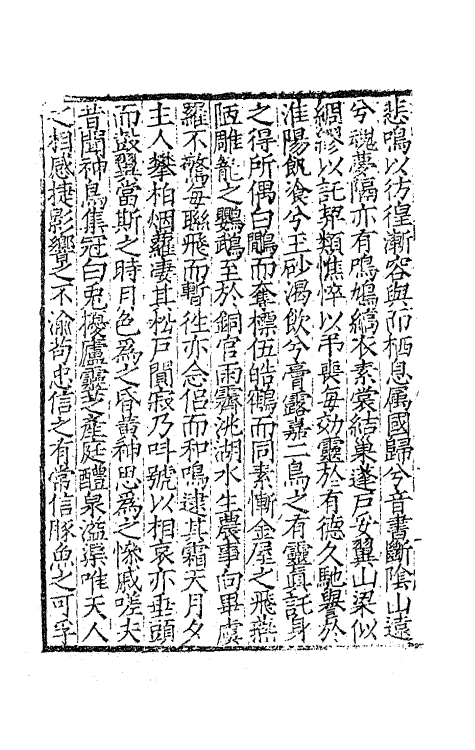 悲鳴以彷徨漸容與而栖息属國歸兮音書斷隂山遠
兮魂夢隔亦有鳲鳩縞衣素裳結巢蓬戸安翼山梁似
綢繆以託契類憔悴以弔喪毎効靈於有德久馳譽於
淮陽飢飡兮玉砂渴飲兮膏露嘉二鳥之有靈眞託身
之得所偶白鷴而奪標伍皓鶴而同素慚金屋之飛燕
陋雕籠之鸚鵡至於銅官雨霽洮湖水生農事向畢虞
羅不驚毎聯飛而暫徃亦念侣而和鳴逮其霜天月夕
主人攀柏烟蘿凄其松戸闃寂乃呌號以相哀亦垂頭
而鼓翼當斯之時月色爲之昏黄神思爲之慘戚嗟夫
昔聞神鳥集冠白兎擾廬靈芝産庭醴泉溢渠唯天人
之相感捷影響之不渝苟忠信之有常信豚魚之可孚